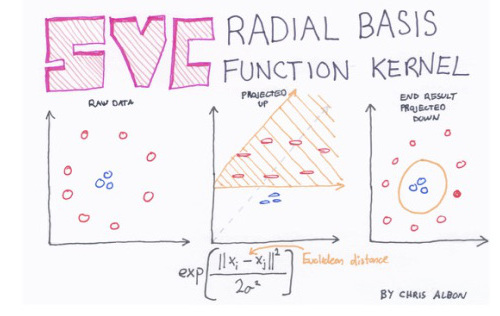 SVC RADIAL BASIS
FUNCTION KERNEL
RAW DATA
PROJECTED
UP
END RESULT
PROJECTED
DOWN
exp(||xi - xj||² / 2σ²)
Euclidean distance
BY CHRIS ALBON